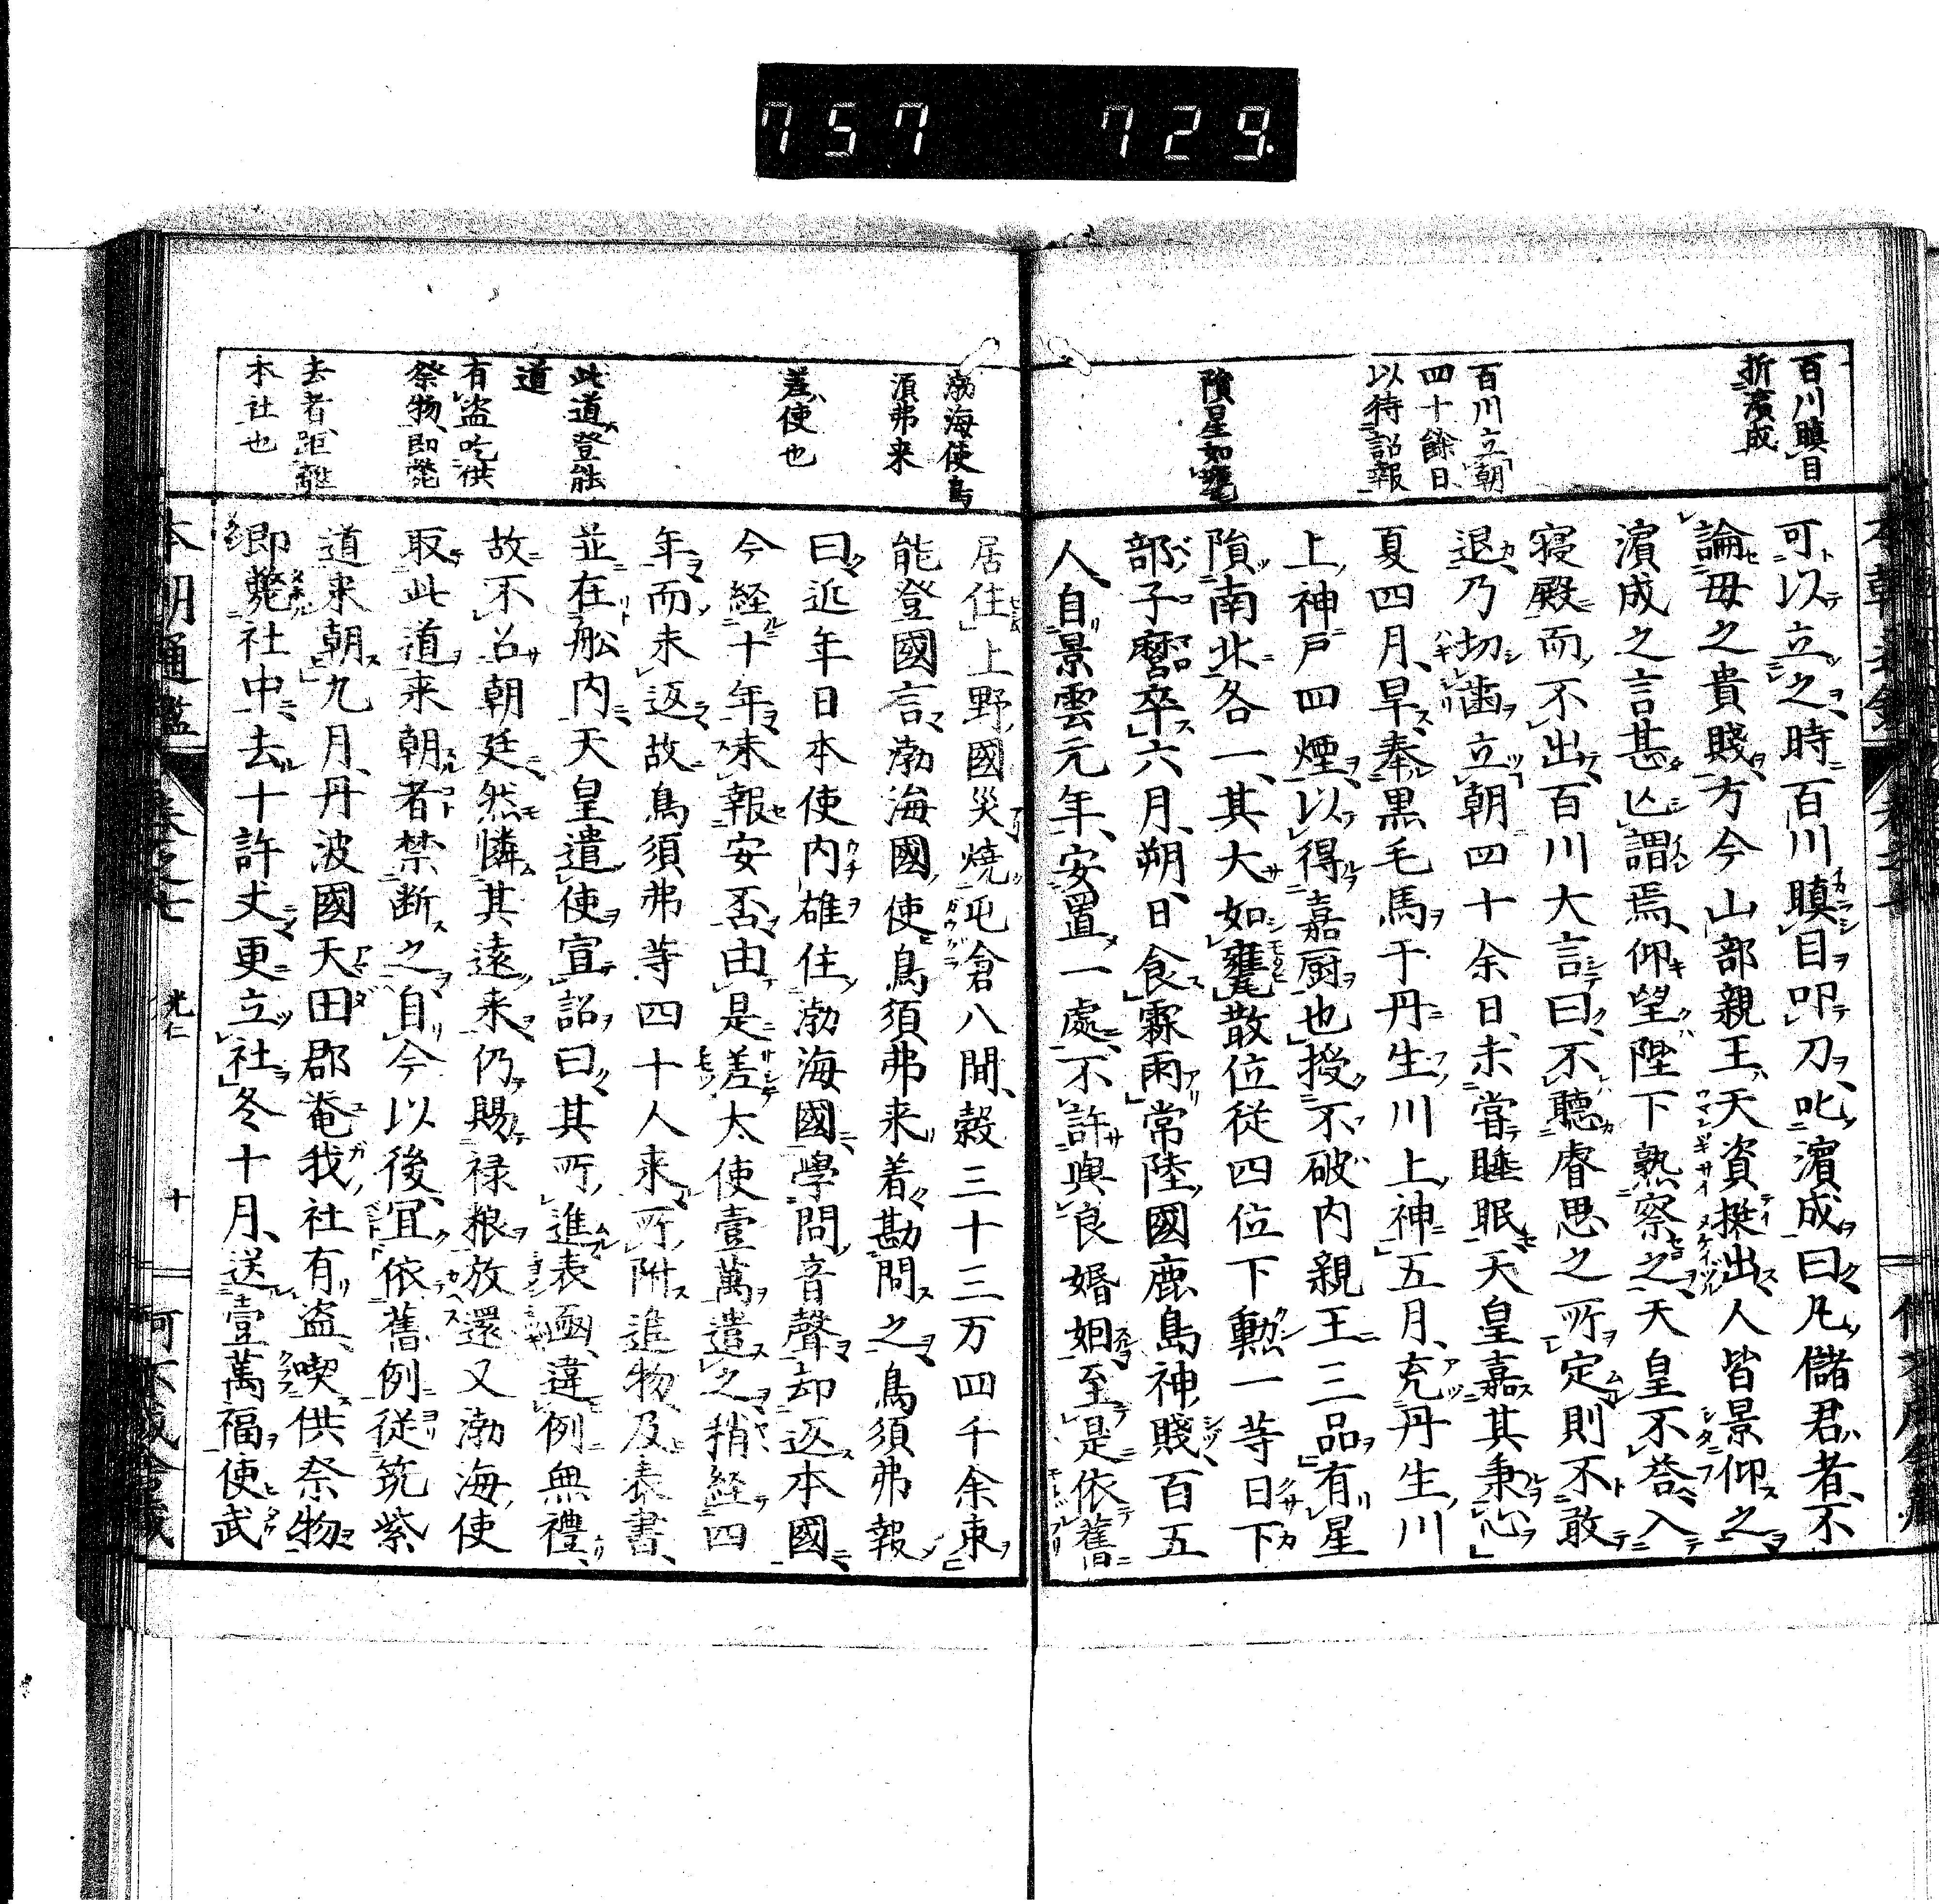 757 729.
百川瞋目
折濱成
百川立朝
四十餘日
以待詔報
隕星如甕
可以立之時百川瞋目叩刀叱濱成曰凡儲君者不
論母之貴賤方今山部親王天資挺出人皆景仰之
濱成之言甚凶謂焉仰望陛下熟察之天皇不荅入
寝殿而不出百川大言曰不聽睿思之所定則不敢
退乃切齒立朝四十余日未甞睡眠天皇嘉其秉心
夏四月旱奉黒毛馬于丹生川上神五月充丹生川
上神戸四煙以得嘉厨也授不破内親王三品有星
隕南北各一其大如甕散位従四位下勲一等日下
部子麿卒六月朔日食霖雨常陸國鹿島神賤百五
人自景雲元年安置一處不許與良婚姻至是依舊
渤海使烏
須弗来
差使也
此道登能
道
有盗吃供
祭物即斃
去者距離
本社也
居住上野國災燒屯倉八間穀三十三万四千余束
能登國言渤海國使烏須弗来着勘問之烏須弗報
曰近年日本使内雄住渤海國學問音聲却返本國
今経十年未報安否由是差大使壹萬遣之稍経四
年而未返故烏須弗等四十人来所附進物及表書
並在舩内天皇遣使宣詔曰其所進表凾違例無禮
故不召朝廷然憐其遠来仍賜禄粮放還又渤海使
取此道来朝者禁断之自今以後冝依舊例従筑紫
道来朝九月丹波國天田郡菴我社有盗喫供祭物
即斃社中去十許丈更立社冬十月送壹萬福使武
本朝通鑑 巻之七 光仁 十